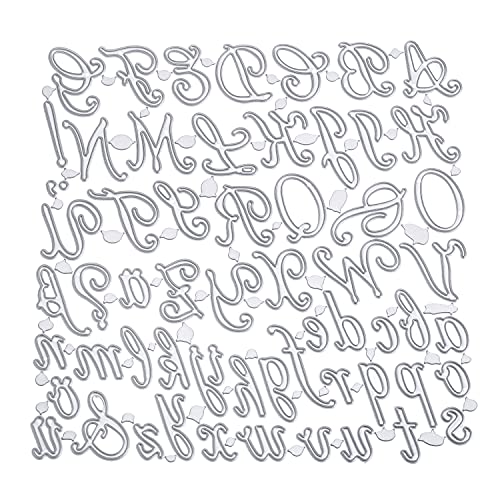 A B C D E F G
H I J K L M N !
O P Q R S T U
V W X Y Z ä ?
a b c d e f g h i j k l m n
o p q r ö
s t u v w x y z & ü